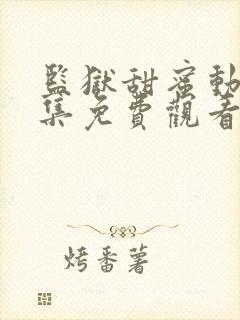 監獄甜蜜動
集免費觀看
烤番薯